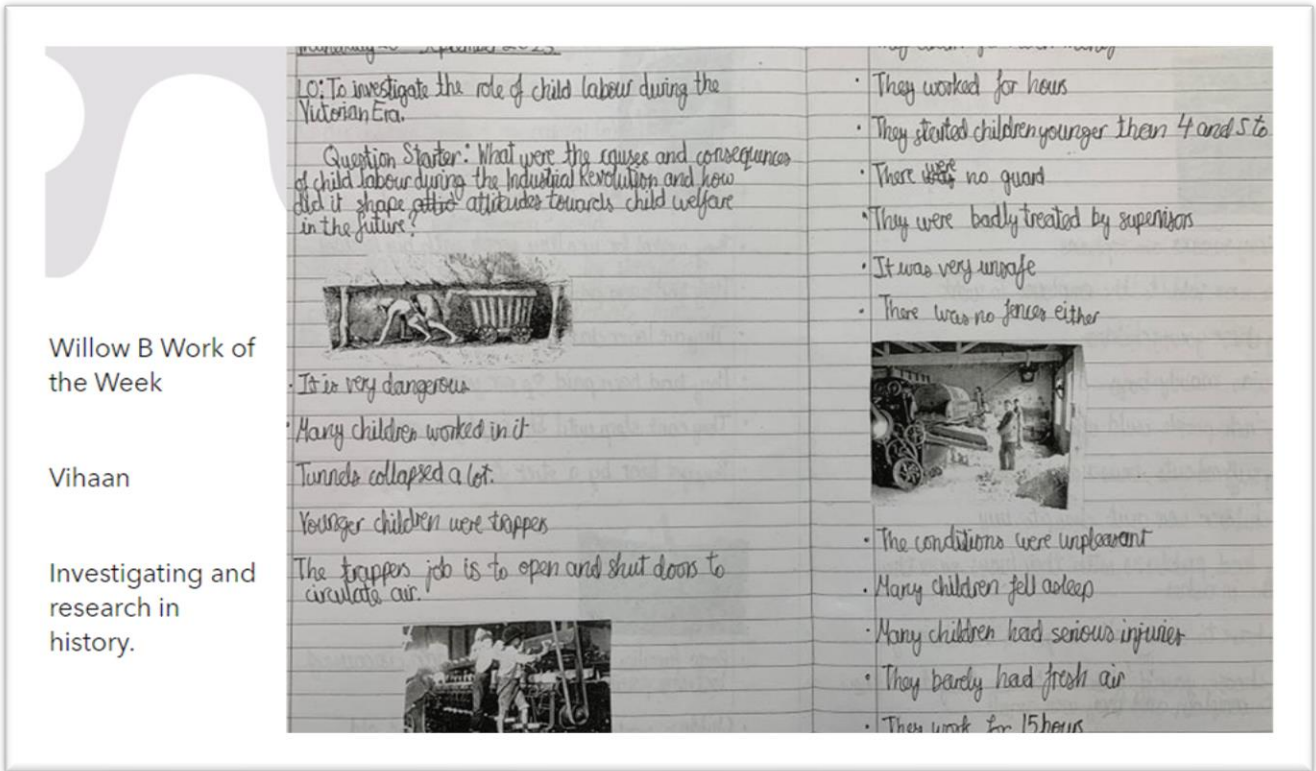 Willow B Work of
the Week
Vihaan
Investigating and
research in
history.
September 2023
LO: To investigate the role of child labour during the
Victorian Era.
Question Starter: What were the causes and consequences
of child labour during the Industrial Revolution and how
did it shape attitudes towards child welfare
in the future?
· It is very dangerous
· Many children worked in it
Tunnels collapsed a lot.
Younger children were trappers
The trappers job is to open and shut doors to
circulate air.
· They worked for hours
· They started children younger than 4 and 5 to
· There were no guard
· They were badly treated by supervisors
· It was very unsafe
· There was no fences either
· The conditions were unpleasant
· Many children fell asleep
· Many children had serious injuries
· They barely had fresh air
· They work for 15 hours